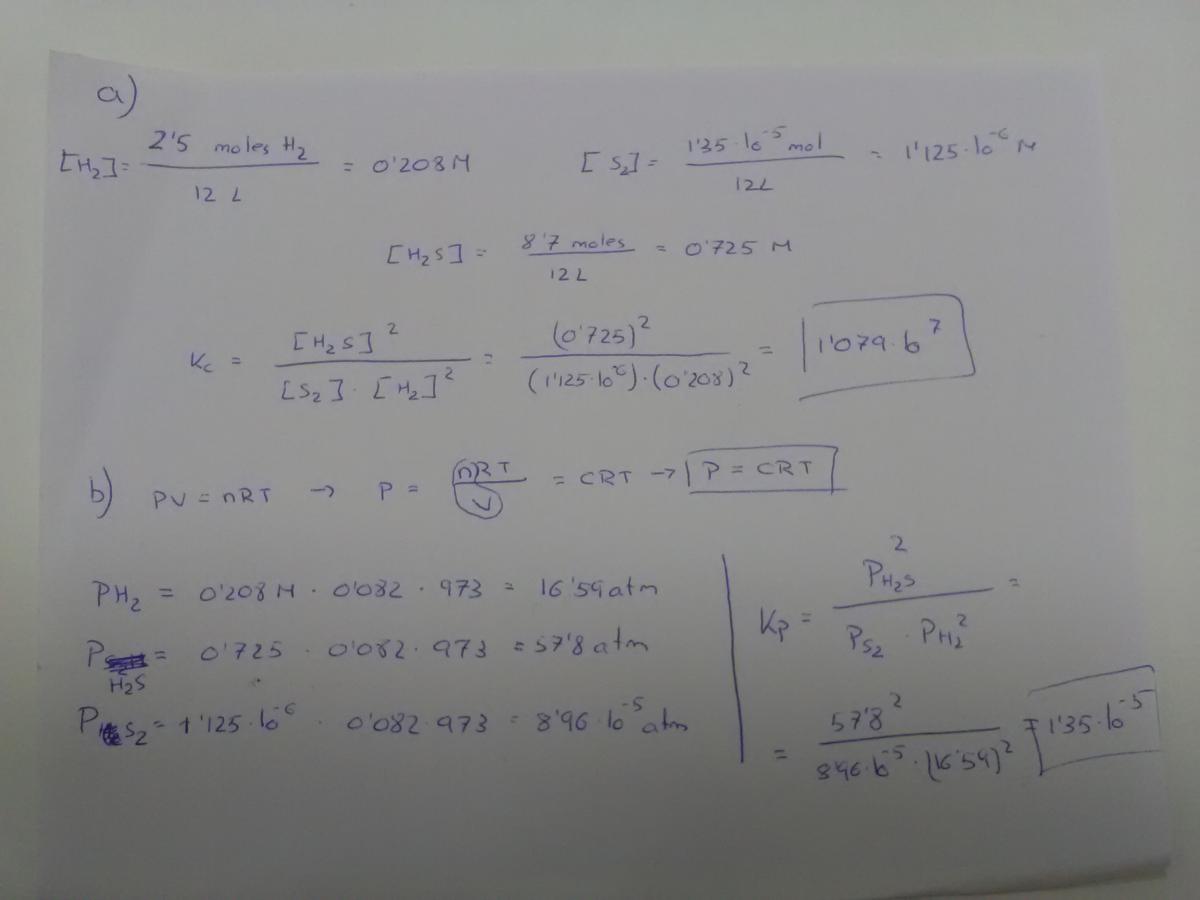 a)
[H₂] = 2'5 moles H₂ / 12 L = 0'208 M
[S₂] = 1'35·10⁻⁵ mol / 12L = 1'125·10⁻⁶ M
[H₂S] = 8'7 moles / 12 L = 0'725 M
Kc = [H₂S]² / [S₂]·[H₂]² = (0'725)² / (1'125·10⁻⁶)·(0'208)² = 1'079·10⁷
b) PV = nRT → P = nRT / V = CRT → P = CRT
PH₂ = 0'208 M · 0'082 · 973 = 16'59 atm
P H₂S = 0'725 · 0'082 · 973 = 57'8 atm
P S₂ = 1'125·10⁻⁶ · 0'082 · 973 = 8'96·10⁻⁵ atm
Kp = P²H₂S / PS₂ · PH₂² =
= 57'8² / 8'96·10⁻⁵ · (16'59)² = 1'35·10⁻⁵